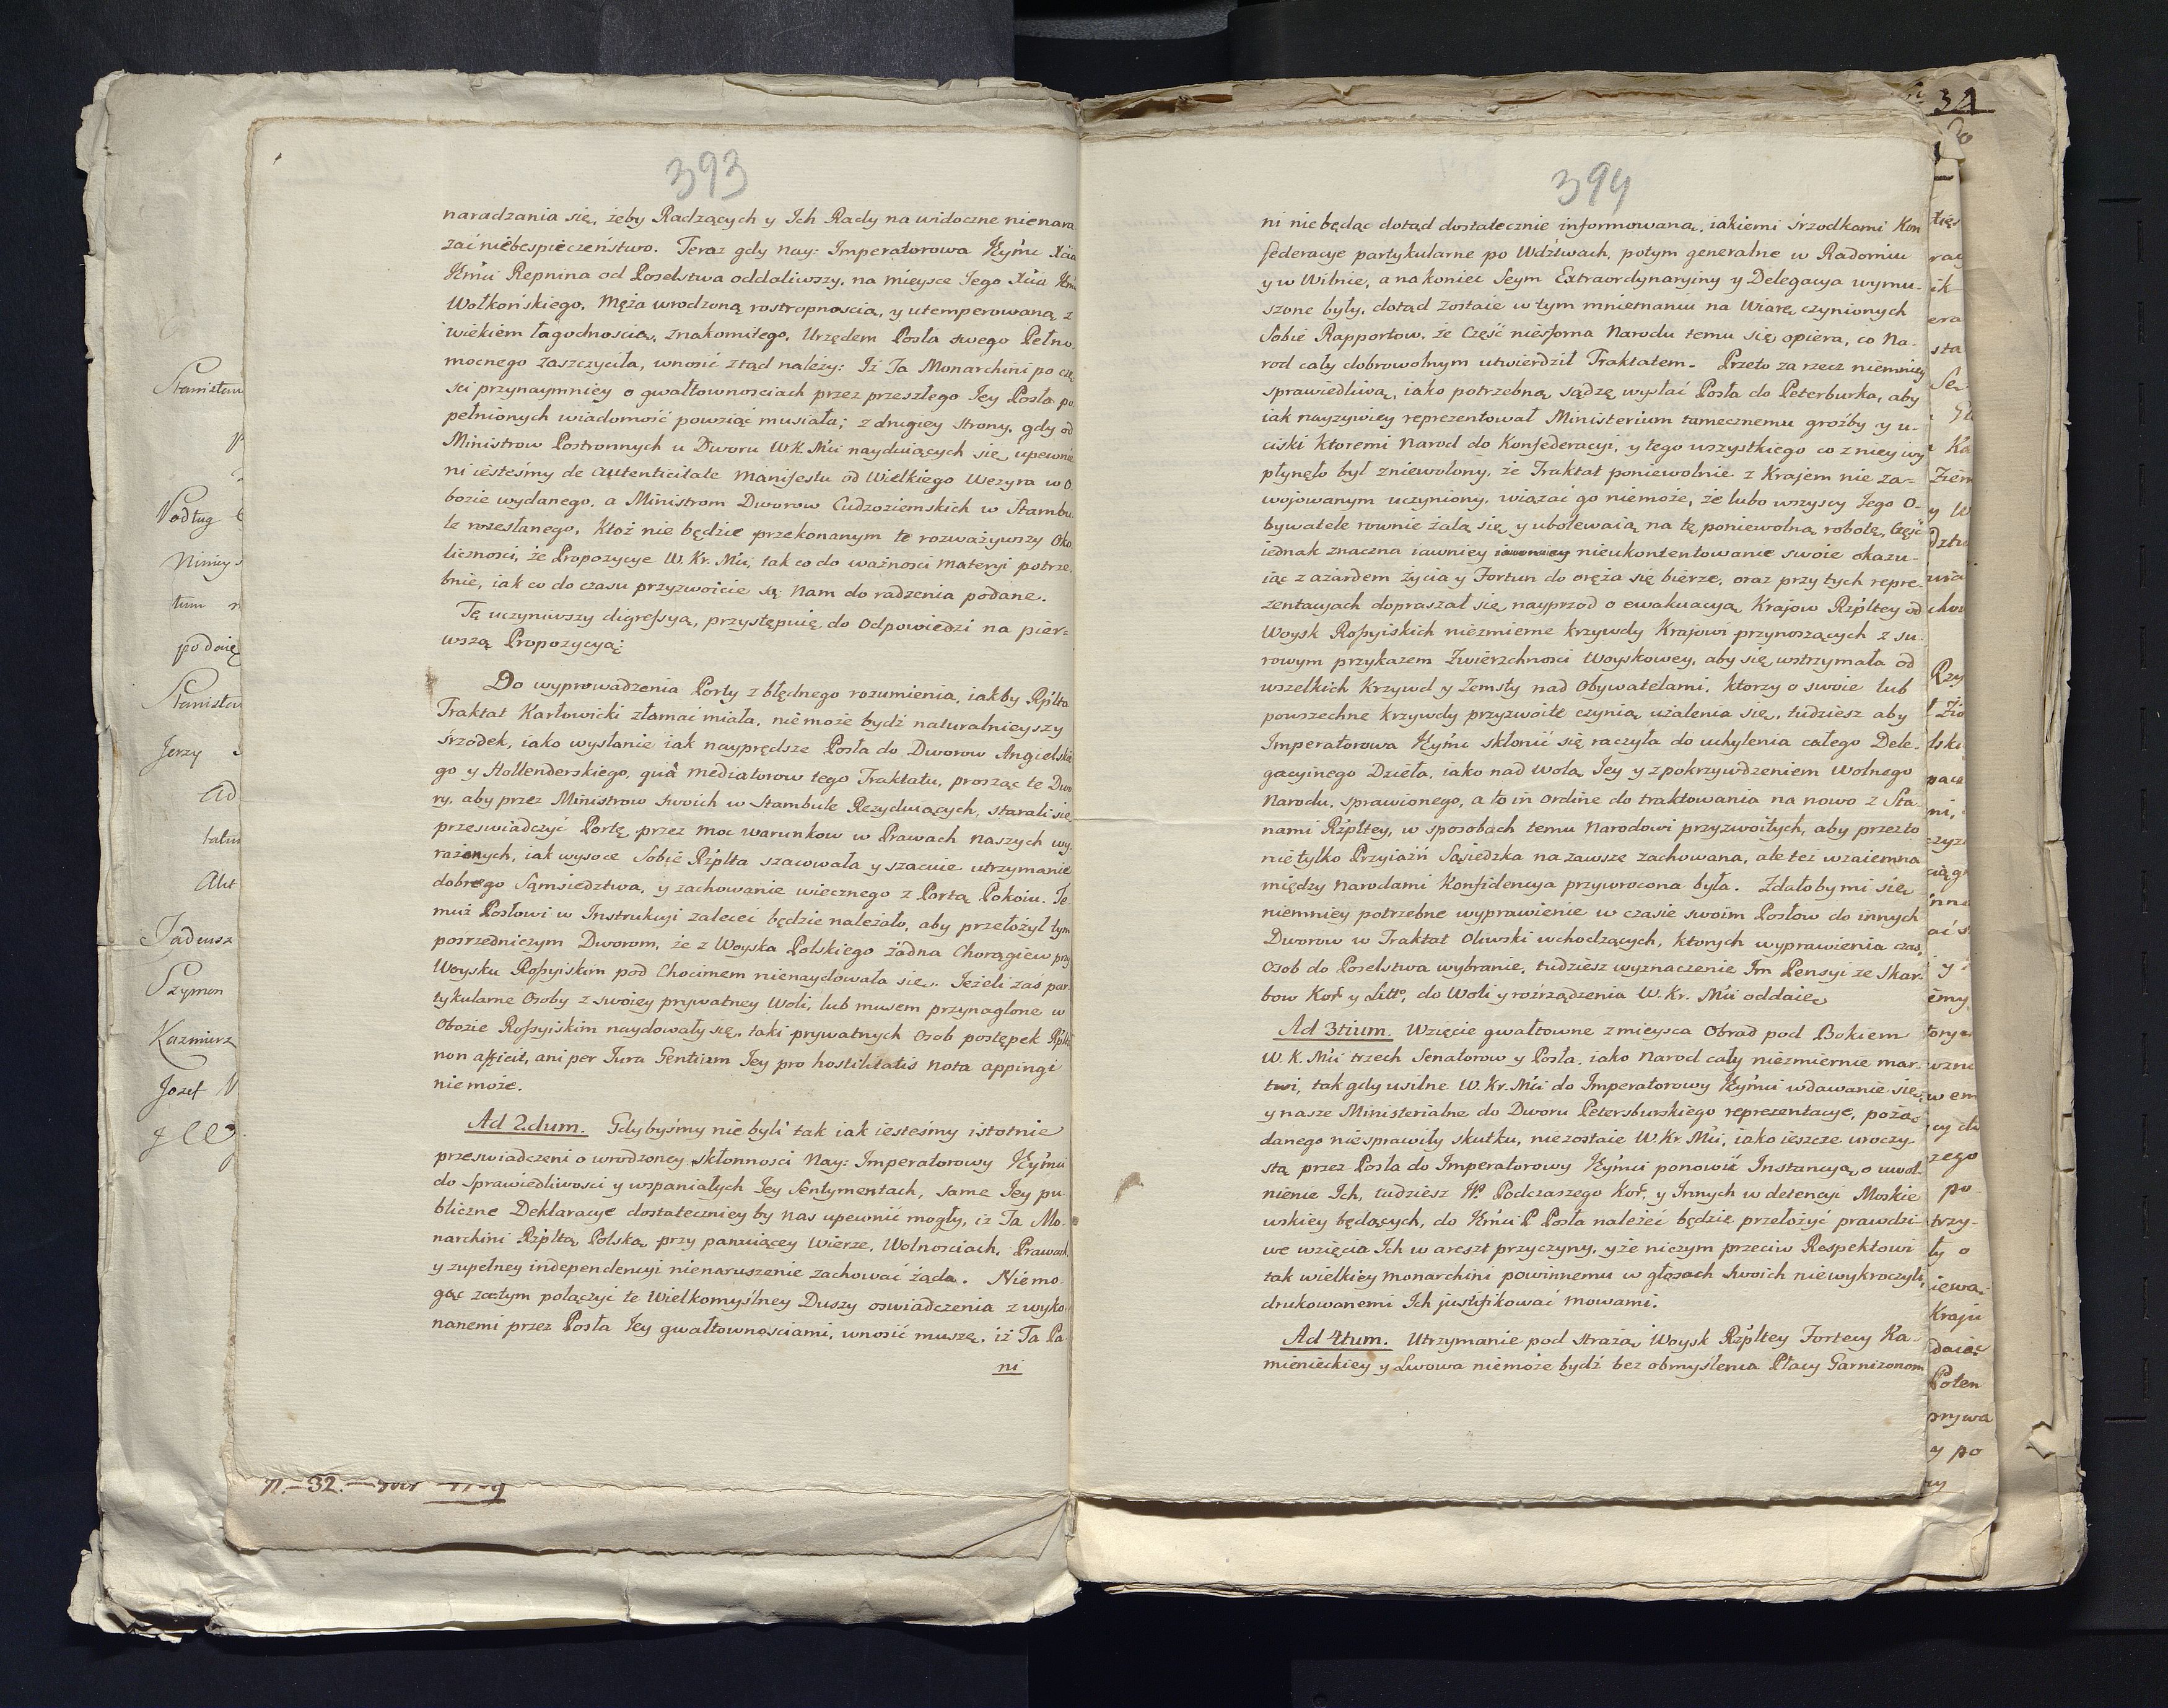 393
naradzania się, żeby Radzących y Ich Rady na widoczne nienara
zać niebespieczeństwo. Teraz gdy Nay: Imperatorowa Jeymć Xcia
Jmći Repnina od Poselstwa oddaliwszy, na mieysce Jego Xcia Jmć
Wołkońskiego, Męża wrodzoną rostropnoscią, y utemperowaną z
wiekiem łagodnoscią, znakomitego, Urzędem Posła swego Pełno-
mocnego zaszczyciła, wnosić ztąd należy: Iż Ta Monarchini po czę
sci przynaymniey o gwałtownosciach przez przeszłego Jey Posła po
pełnionych wiadomość powziąć musiała; z drugiey strony, gdy od
Ministrow Postronnych u Dworu W.K.Mći nayduiących się, upewnie
ni iestesmy de autenticitate Manifestu od Wielkiego Wezyra w O
bozie wydanego, a Ministrom Dworow Cudzoziemskich w Stambu
le rozesłanego, Ktoż nie będzie przekonanym te rozważywszy Oko
licznosci, że Propozycye W. Kr. Mći, tak co do ważnosci materyi potrze
bnie, iak co do czasu przyzwoicie są Nam do radzenia podane.
Tę uczyniwszy digressyą, przystępuię do Odpowiedzi na pier-
wszą Propozycyą:
Do wyprowadzenia Porty z błędnego rozumienia, iakby Rzplta
Traktat Karłowicki złamać miała, nie może bydź naturalnieyszy
srzodek, iako wysłanie iak nayprędsze Posła do Dworow Angielskie
go y Hollenderskiego, quà Mediatorow tego Traktatu, prosząc te Dwo
ry, aby przez Ministrow swoich w Stambule Rezyduiących, starali się
przeswiadczyć Portę, przez moc warunkow w Prawach naszych wy
rażonych, iak wysoce sobie Rzplta szacowała y szacuie utrzymanie
dobrego Sąmsiedztwa, y zachowanie wiecznego z Portą Pokoiu. Te
muż Posłowi w Instrukcyi zalecić będzie należało, aby przełożył tym
posrzedniczym Dworom, że z Woyska Polskiego żadna Chorągiew przy
Woysku Rossyiskim pod Chocimem nienaydowała się. Jeżeli zaś par
tykularne Osoby z swoiey prywatney Woli, lub musem przynaglone w
Obozie Rossyiskim naydowały się, taki prywatnych Osob postępek Rzplty
non afficit, ani per Jura Gentium Jey pro hostilitatis nota appingi
nie może.
Ad 2dum. Gdybysmy nie byli tak iak iestesmy istotnie
przeswiadczeni o wrodzoney skłonnosci Nay: Imperatorowy Jeymći
do Sprawiedliwosci y wspaniałych Jey Sentymentach, same Jey pu
bliczne Deklaracye dostateczniey by nas upewnić mogły, iż Ta Mo-
narchini Rzpltą Polską, przy panuiącey Wierze, Wolnosciach, Prawach
y zupełney independencyi nienaruszenie zachować żąda. Niemo-
gąc zatym połączyć te Wielkomyślney Duszy oswiadczenia z wyko
nanemi przez Posła Jey gwałtownosciami, wnosić muszę, iż Ta Pa-
ni
394
ni nie będąc dotąd dostatecznie informowana, iakiemi srzodkami Kon
federacye partykularne po Wdztwach, potym generalne w Radomiu
y w Wilnie, a nakoniec Seym Extraordynaryiny y Delegacya wymu-
szone były, dotąd zostaie w tym mniemaniu na Wiarę czynionych
Sobie Rapportow, że Część niesforna Narodu temu się opiera, co Na-
rod cały dobrowolnym utwierdził Traktatem. Przeto za rzecz niemniey
sprawiedliwą, iako potrzebną sądzę wysłać Posła do Peterburka, aby
iak nayżywiey reprezentował Ministerium tamecznemu groźby y u-
ciski ktoremi Narod do Konfederacyi, y tego wszystkiego co z niey wy
płynęło był zniewolony, że Traktat poniewolnie z Krajem nie za-
wojowanym uczyniony, wiązać go niemoże, że lubo wszyscy Jego O-
bywatele rownie żalą się y ubolewaią na tę poniewolną robotę, Część
iednak znaczna iawniey nieukontentowanie swoie okazu-
iąc z azardem życia y Fortun do oręża się bierze, oraz przy tych repre-
zentacyach dopraszał się nayprzod o ewakuacyą Krajow Rzpltey od
Woysk Rossyiskich niezmierne krzywdy Krajowi przynoszących z su-
rowym przykazem Zwierzchnosci Woyskowey, aby się wstrzymała od
wszelkich Krzywd y Zemsty nad Obywatelami, ktorzy o swoie lub
powszechne krzywdy przyzwoite czynią użalenia się, tudziesz aby
Imperatorowa Jeymć skłonić się raczyła do uchylenia całego Dele-
gacyinego Dzieła, iako nad Wolą Jey y z pokrzywdzeniem Wolnego
Narodu, sprawionego, a to in ordine do traktowania na nowo z Sta-
nami Rzpltey, w sposobach temu Narodowi przyzwoitych, aby przez to
nie tylko Przyiaźń Sąsiedzka na zawsze zachowana, ale też wzaiemna
między Narodami Konfidencya przywrocona była. Zdałoby mi się
niemniey potrzebne wyprawienie w czasie swoim Posłow do innych
Dworow w Traktat Oliwski wchodzących, ktorych wyprawienia czas,
Osob do Poselstwa wybranie, tudziesz wyznaczenie Im Pensyi ze Skar-
bow Kor. y Litto, do Woli y rozrządzenia W. Kr. Mći oddaię
Ad 3tium. Wzięcie gwałtowne z mieysca Obrad pod Bokiem
W. K. Mći trzech Senatorow y Posła, iako Narod cały niezmiernie mar-
twi, tak gdy usilne W. Kr. Mći do Imperatorowy Jeymći wdawanie się,
y nasze Ministerialne do Dworu Petersburskiego reprezentacye, pożą-
danego nie sprawiły skutku, nie zostaie W. Kr. Mći, iako ieszcze uroczy-
stą przez Posła do Imperatorowy Jeymći ponowić Instancyą, o uwol-
nienie Ich, tudziesz Podczaszego Kor. y Innych w detencyi Moskie
wskiey będących, do Jmći P. Posła należeć będzie przełożyć prawdzi-
we wzięcia Ich w areszt przyczyny, y że niczym przeciw Respektowi
tak wielkiey Monarchini powinnemu w głosach swoich niewykroczyli,
drukowanemi Ich justifikować mowami.
Ad 4tum. Utrzymanie pod strażą Woysk Rzpltey Fortecy Ka-
mienieckiey y Lwowa niemoże bydź bez obmyślenia Płacy Garnizonom
Podług
Jerzy
Ad
Tadeusz
Szymon
Kazimierz
Jozef
34